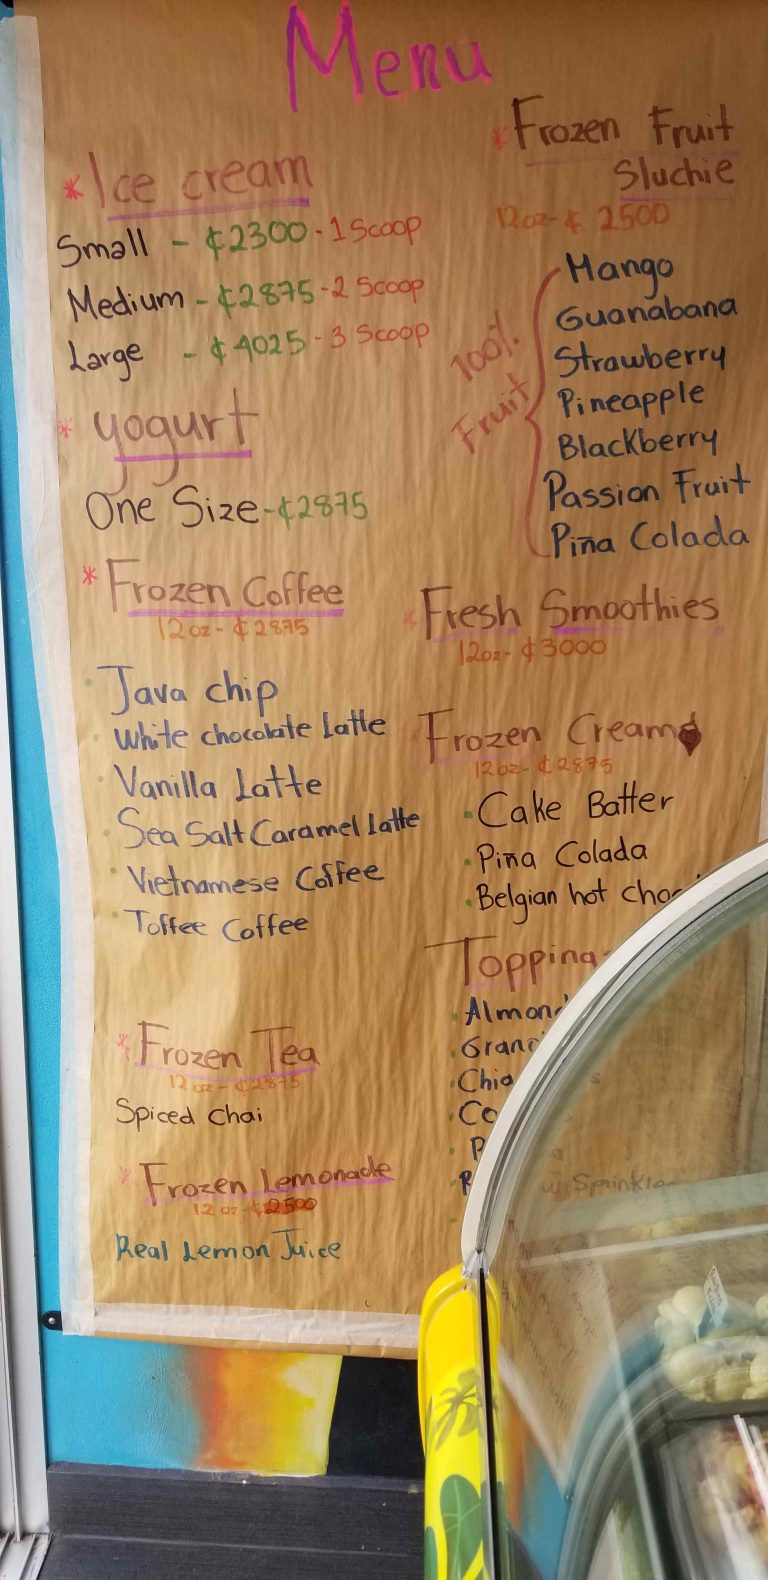 Menu
*Ice cream
Small - ₡2300 - 1 Scoop
Medium - ₡2875 - 2 Scoop
Large - ₡4025 - 3 Scoop
* yogurt
One Size - ₡2875
* Frozen Coffee
12oz - ₡2875
Java chip
White chocolate Latte
Vanilla Latte
Sea Salt Caramel Latte
Vietnamese Coffee
Toffee Coffee
* Frozen Tea
12oz - ₡2875
Spiced Chai
* Frozen Lemonade
12oz - ₡2500
Real Lemon Juice
* Frozen Fruit
Sluchie
12oz - ₡ 2500
100%
Fruit
Mango
Guanabana
Strawberry
Pineapple
Blackberry
Passion Fruit
Piña Colada
* Fresh Smoothies
12oz - ₡3000
Frozen Cream
12oz - ₡2875
Cake Batter
Piña Colada
Belgian hot
Topping
Chia